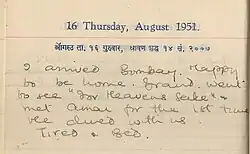 16 Thursday, August 1951.
ऑगस्ट ता. १६ गुरुवार, श्रावण शुद्ध १४ सं. २००७
I arrived Bombay. Happy
to be home. Grand. went
to see "For Heavens Sake" &
met Amar for the 1st time
He dined with us.
Tired & Bed.